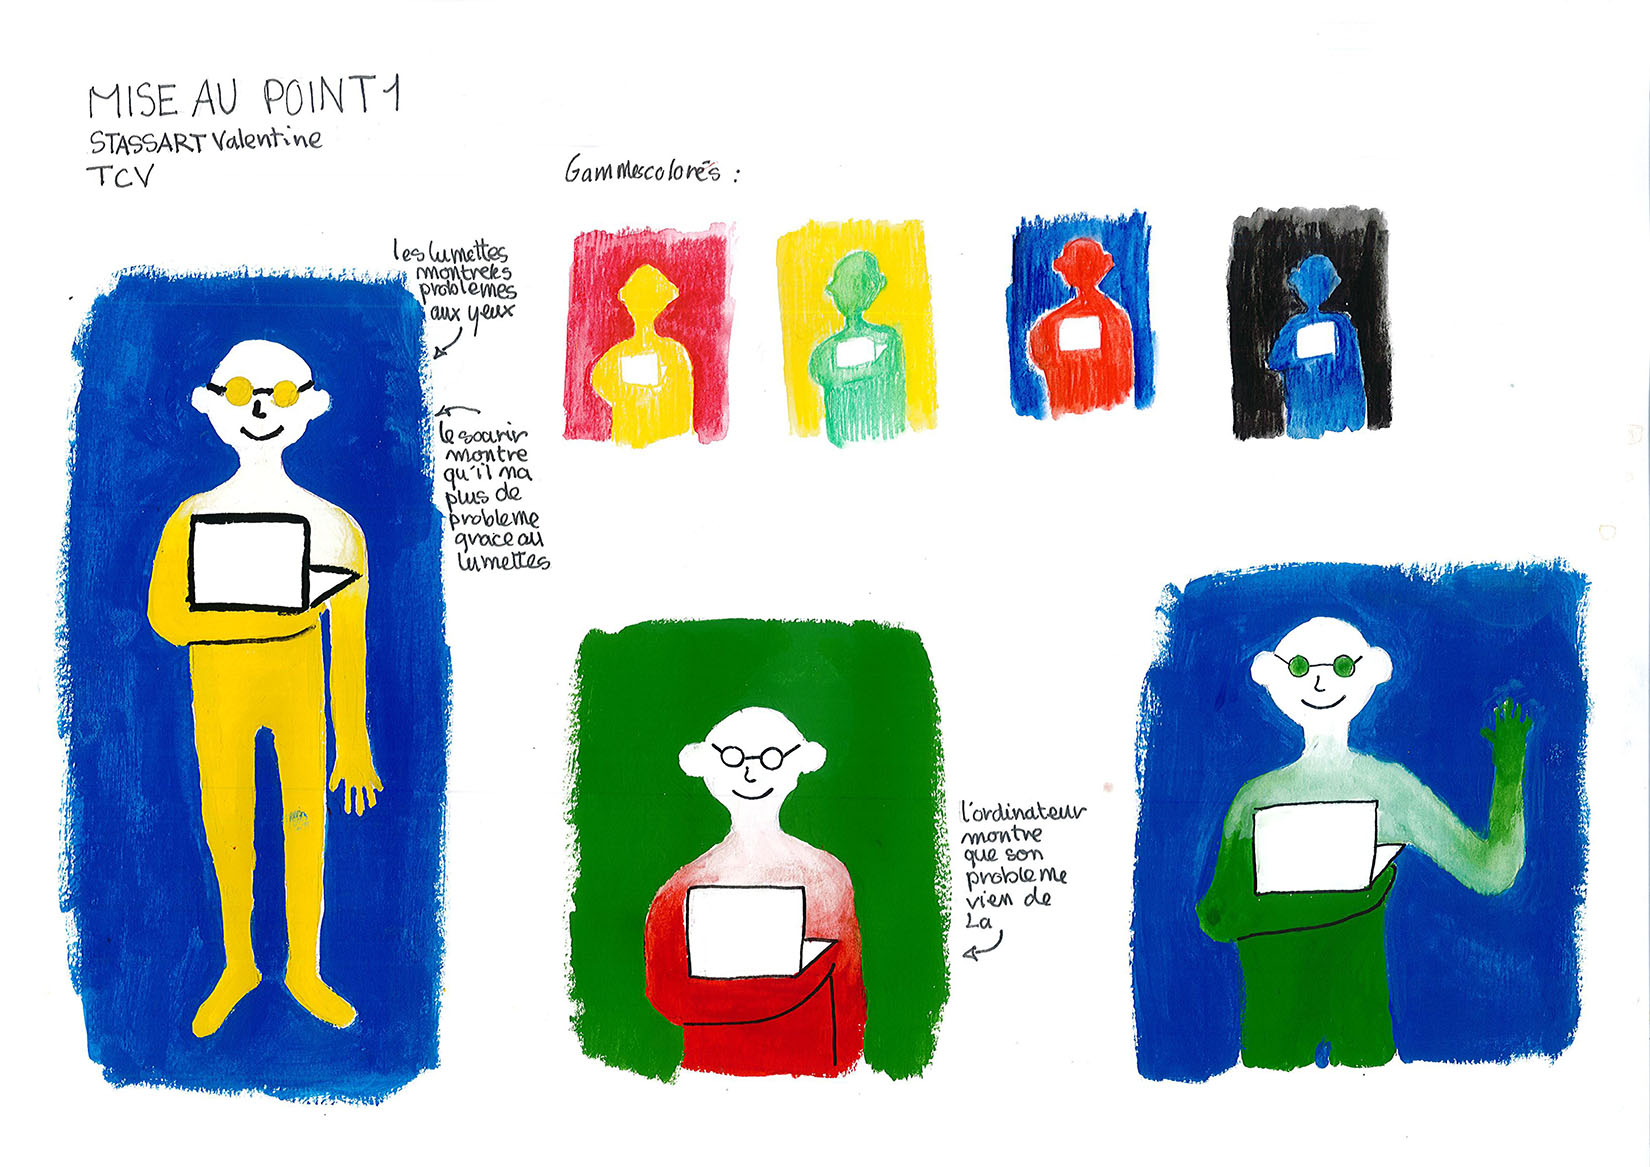 MISE AU POINT 1
STASSART Valentine
TCV
Gammescolorés :
les lumettes
montreles
problèmes
aux yeux
le sourir
montre
qu'il na
plus de
probleme
grace au
lumettes
l'ordinateur
montre
que son
probleme
vien de
La